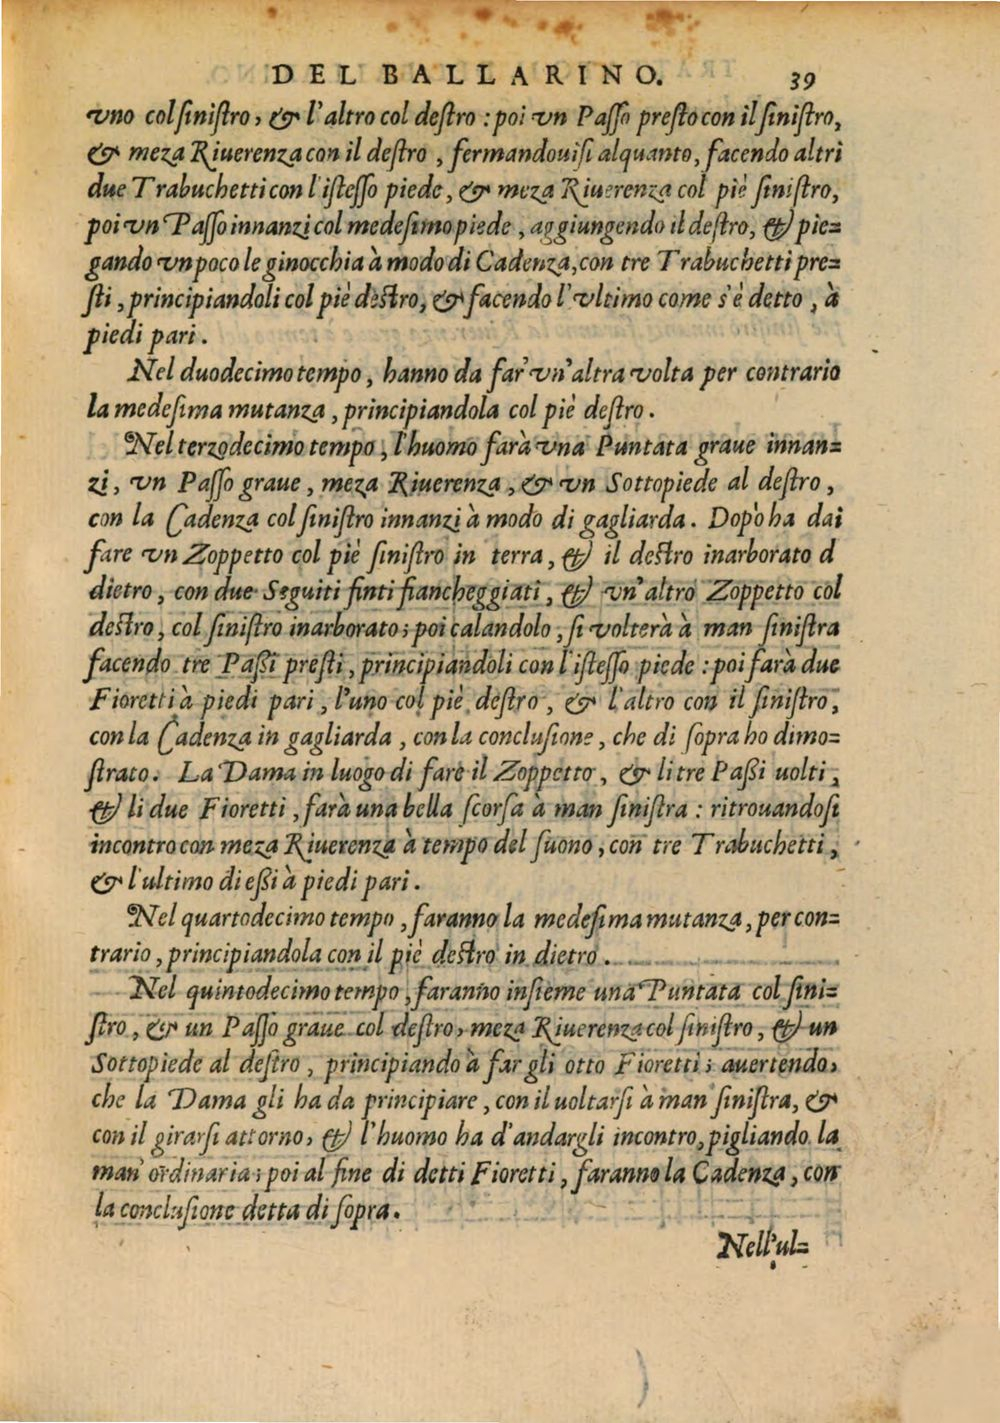 DEL BALLARINO. 39
vno col ſiniſtro, & l'altro col deſtro : poi vn Paſſo preſto con il ſiniſtro,
& meza Riuerenza con il deſtro, fermandouiſi alquanto, facendo altri
due Trabuchetti con l'iſteſſo piede, & meza Riuerenza col piè ſiniſtro,
poi vn Paſſo innanzi col medeſimo piede, aggiungendo il deſtro, & pie=
gando vn poco le ginocchia à modo di Cadenza, con tre Trabuchetti pre=
ſti, principiandoli col piè deſtro, & facendo l'vltimo come s'è detto, à
piedi pari.
Nel duodecimo tempo, hanno da far' vn'altra volta per contrario
la medeſima mutanza, principiandola col piè deſtro.
Nel terzodecimo tempo, l'huomo farà vna Puntata graue innan=
zi, vn Paſſo graue, meza Riuerenza, & vn Sottopiede al deſtro,
con la Cadenza col ſiniſtro innanzi à modo di gagliarda. Dopò ha dai
fare vn Zoppetto col piè ſiniſtro in terra, & il deſtro inarborato d
dietro, con due Seguiti finti fiancheggiati, & vn'altro Zoppetto col
deſtro, col ſiniſtro inarborato; poi calandolo, ſi volterà à man ſiniſtra
facendo tre Paßi preſti, principiandoli con l'iſteſſo piede : poi farà due
Fioretti à piedi pari, l'uno col piè deſtro, & l'altro con il ſiniſtro,
con la Cadenza in gagliarda, con la concluſione, che di ſopra ho dimo=
ſtrato. La Dama in luogo di fare il Zoppetto, & li tre Paßi uolti,
& li due Fioretti, farà una bella ſcorſa à man ſiniſtra : ritrouandoſi
incontro con meza Riuerenza à tempo del ſuono, con tre Trabuchetti,
& l'ultimo di eßi à piedi pari.
Nel quartodecimo tempo, faranno la medeſima mutanza, per con=
trario, principiandola con il piè deſtro in dietro.
Nel quintodecimo tempo, faranno inſieme una Puntata col ſini=
ſtro, & un Paſſo graue col deſtro, meza Riuerenza col ſiniſtro, & un
Sottopiede al deſtro, principiando à far gli otto Fioretti; auertendo,
che la Dama gli ha da principiare, con il uoltarſi à man ſiniſtra, &
con il girarſi attorno, & l'huomo ha d'andargli incontro, pigliando la
man' ordinaria; poi al fine di detti Fioretti, faranno la Cadenza, con
la concluſione detta di ſopra.
Nell'ul=